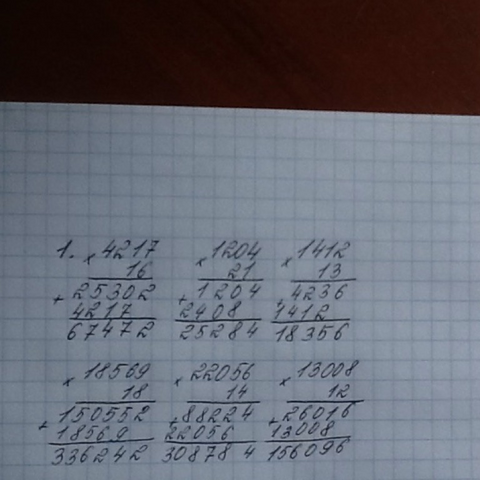 1. ×4217 ×1204 ×1412
16 21 13
+25302 +1204 +4236
4217 2408 1412
67472 25284 18356
×18569 ×22056 ×13008
18 14 12
+150552 +88224 +26016
18569 22056 13008
336242 308784 156096